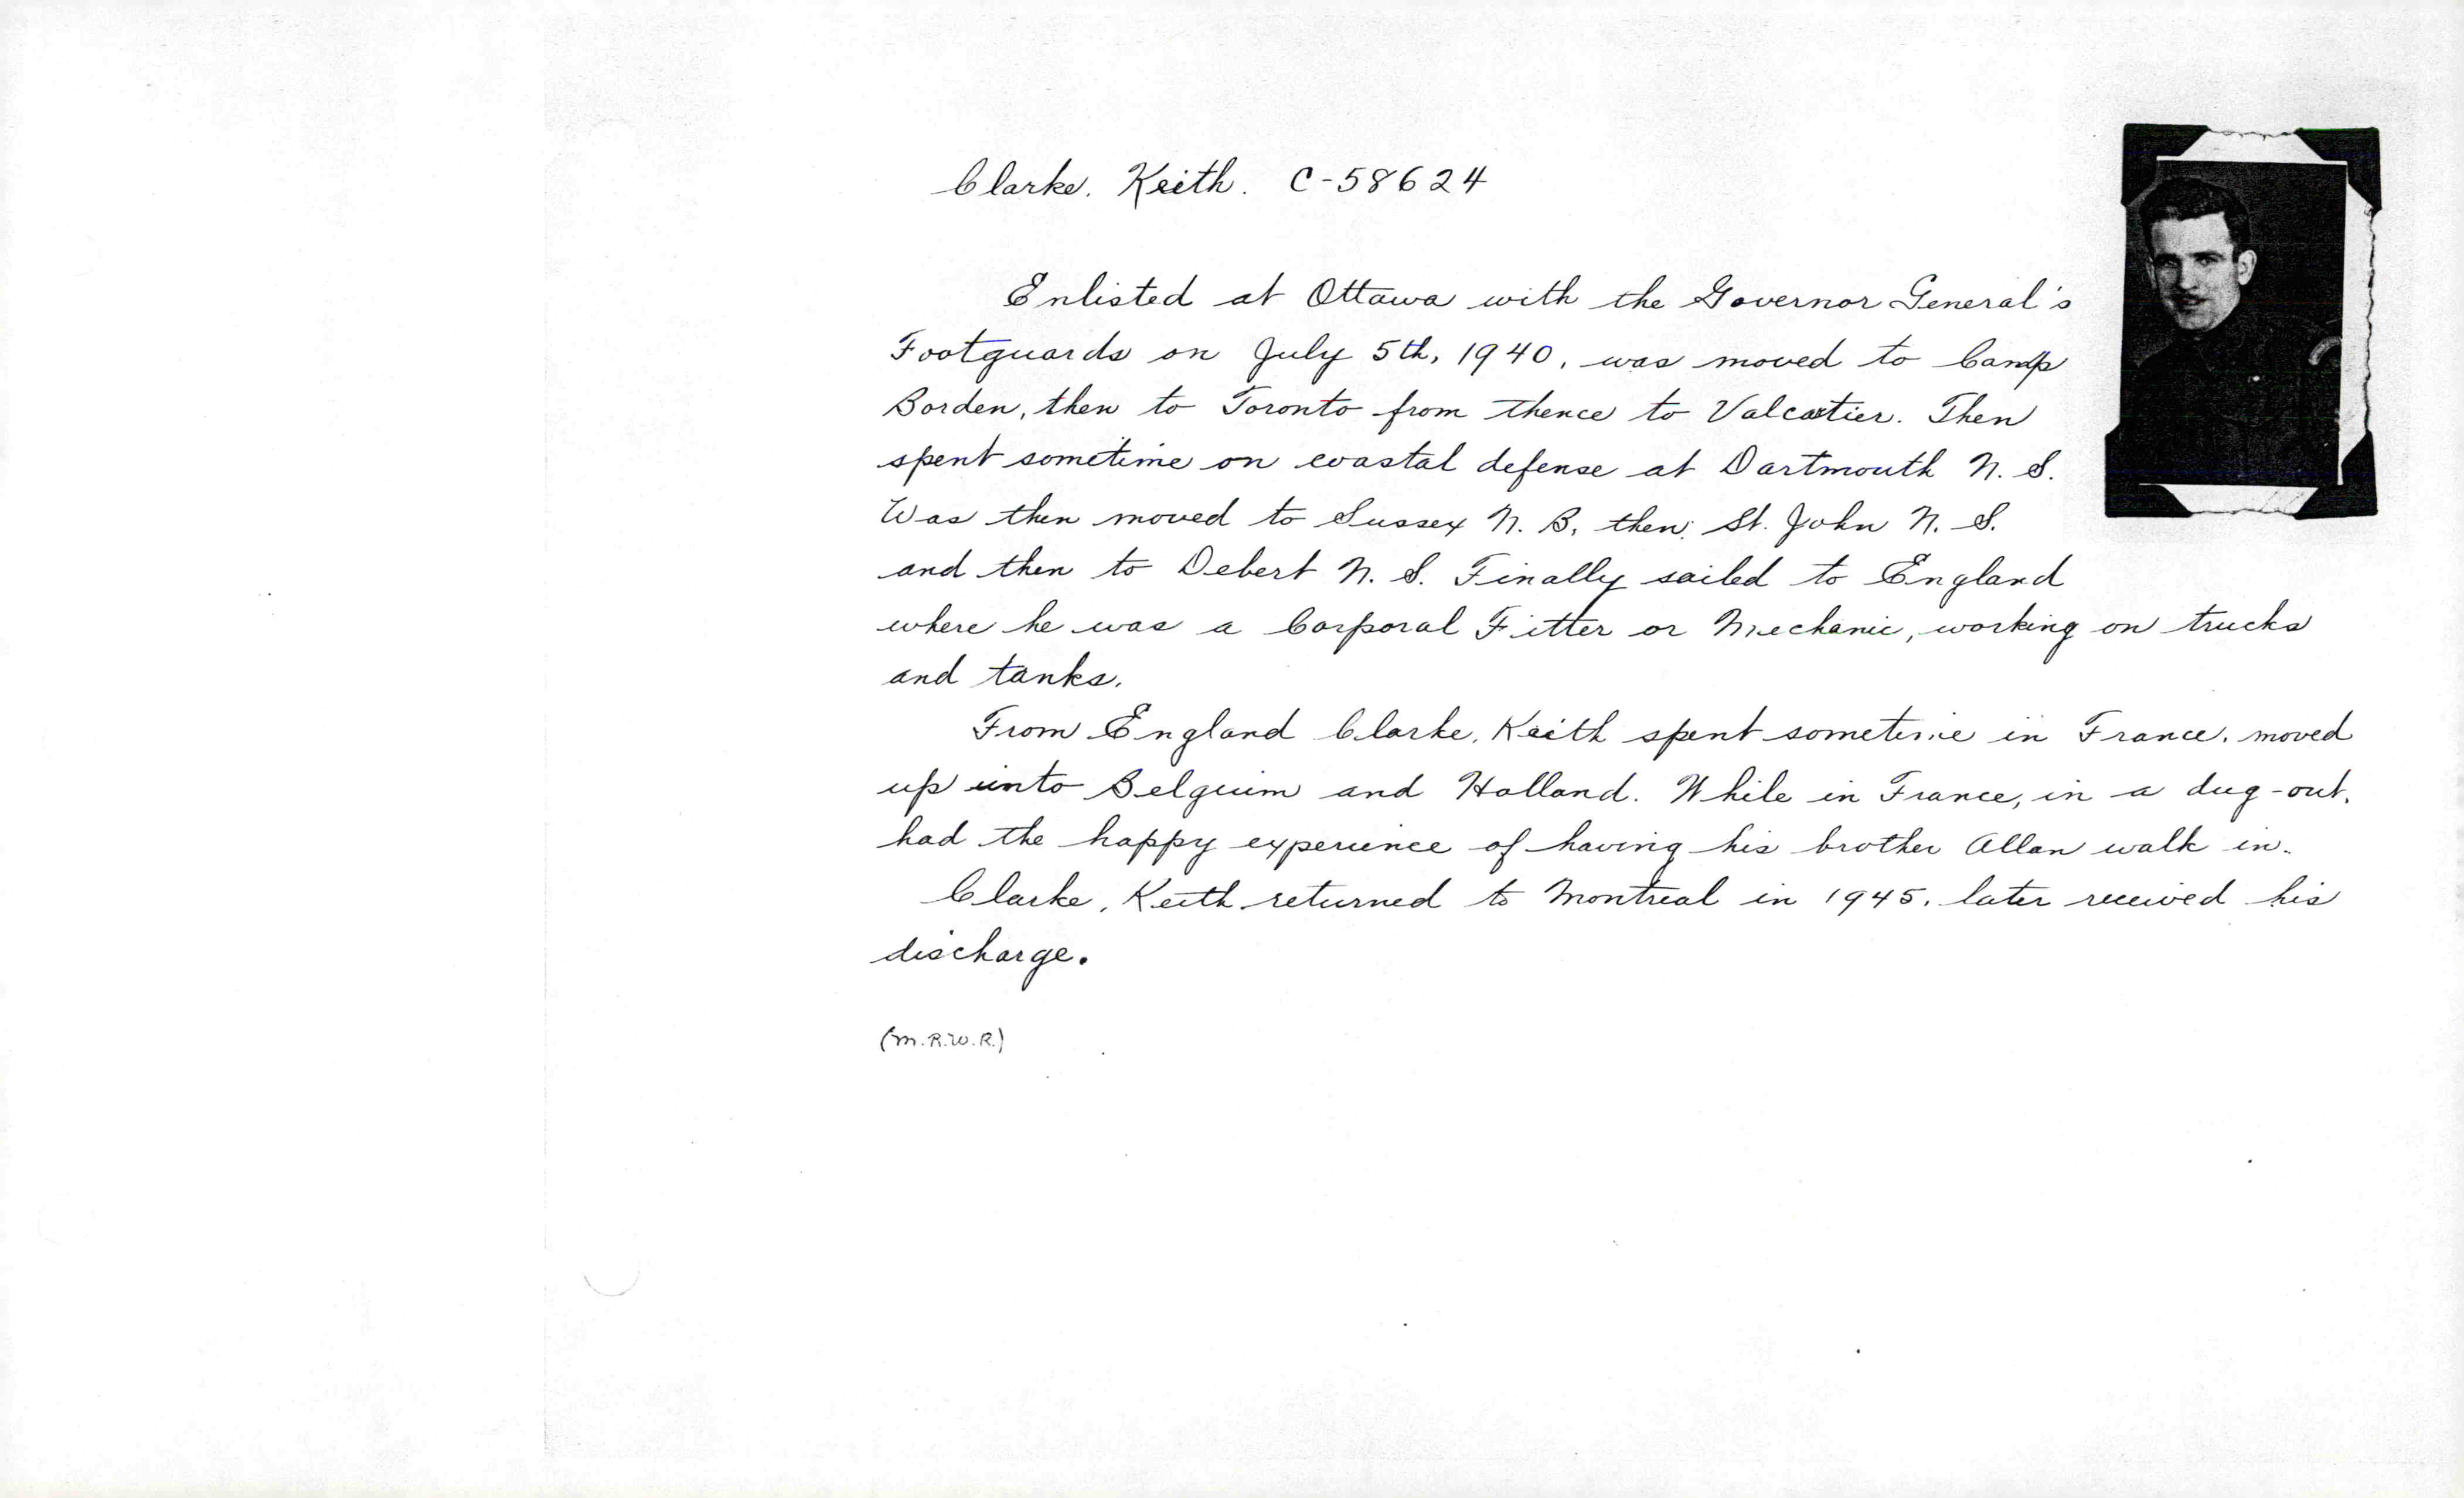 Clarke. Keith. C-58624
Enlisted at Ottawa with the Governor General's
Footguards on July 5th, 1940, was moved to Camp
Borden, then to Toronto from thence to Valcartier. Then
spent sometime on coastal defense at Dartmouth N. S.
Was then moved to Sussex N. B, then, St. John N. S.
and then to Debert N. S. Finally sailed to England
where he was a Corporal Fitter or Mechanic, working on trucks
and tanks.
From England Clarke, Keith spent sometime in France, moved
up into Belguim and Holland. While in France, in a dug-out,
had the happy experience of having his brother Allan walk in.
Clarke, Keith returned to Montreal in 1945, later received his
discharge.
(M.R.W.R.)